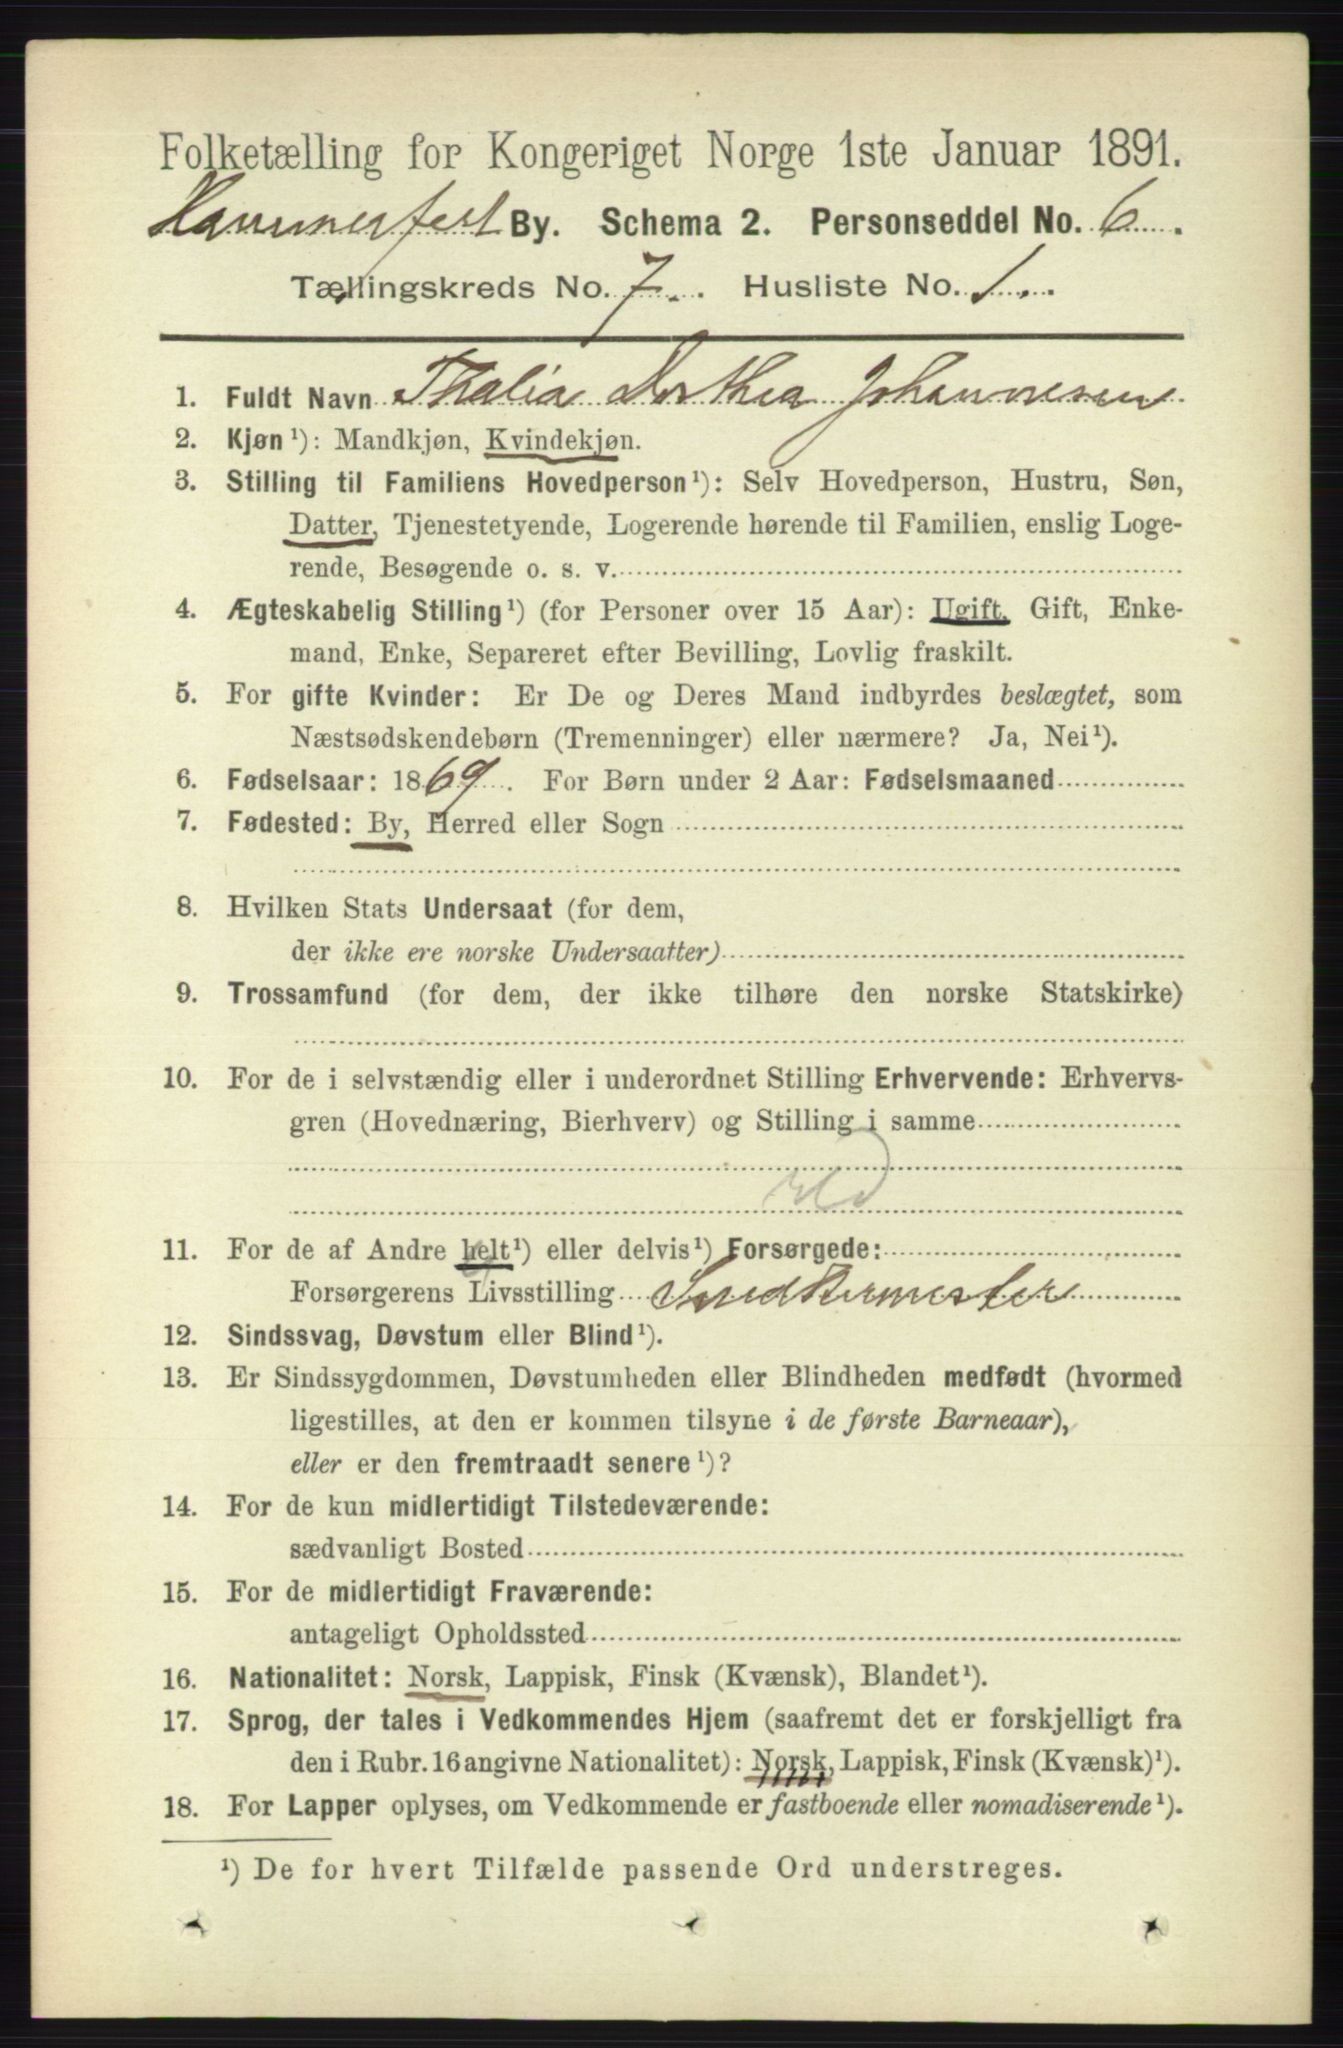 Folketælling for Kongeriget Norge 1ste Januar 1891.
Hammerfest By. Schema 2. Personseddel No. 6
Tællingskreds No. 7. Husliste No. 1.
1. Fuldt Navn Thalia Dorthea Johannesen
2. Kjøn¹): Mandkjøn, Kvindekjøn.
3. Stilling til Familiens Hovedperson¹): Selv Hovedperson, Hustru, Søn,
Datter, Tjenestetyende, Logerende hørende til Familien, enslig Loge-
rende, Besøgende o. s. v.
4. Ægteskabelig Stilling¹) (for Personer over 15 Aar): Ugift, Gift, Enke-
mand, Enke, Separeret efter Bevilling, Lovlig fraskilt.
5. For gifte Kvinder: Er De og Deres Mand indbyrdes beslægtet, som
Næstsødskendebørn (Tremenninger) eller nærmere? Ja, Nei¹).
6. Fødselsaar: 1869. For Børn under 2 Aar: Fødselsmaaned
7. Fødested: By, Herred eller Sogn
8. Hvilken Stats Undersaat (for dem,
der ikke ere norske Undersaatter)
9. Trossamfund (for dem, der ikke tilhøre den norske Statskirke)
10. For de i selvstændig eller i underordnet Stilling Erhvervende: Erhvervs-
gren (Hovednæring, Bierhverv) og Stilling i samme
11. For de af Andre helt¹) eller delvis¹) Forsørgede:
Forsørgerens Livsstilling Snedkermester
12. Sindssvag, Døvstum eller Blind¹).
13. Er Sindssygdommen, Døvstumheden eller Blindheden medfødt (hvormed
ligestilles, at den er kommen tilsyne i de første Barneaar),
eller er den fremtraadt senere¹)?
14. For de kun midlertidigt Tilstedeværende:
sædvanligt Bosted
15. For de midlertidigt Fraværende:
antageligt Opholdssted
16. Nationalitet: Norsk, Lappisk, Finsk (Kvænsk), Blandet¹).
17. Sprog, der tales i Vedkommendes Hjem (saafremt det er forskjelligt fra
den i Rubr. 16 angivne Nationalitet): Norsk, Lappisk, Finsk (Kvænsk)¹).
18. For Lapper oplyses, om Vedkommende er fastboende eller nomadiserende¹).
¹) De for hvert Tilfælde passende Ord understreges.